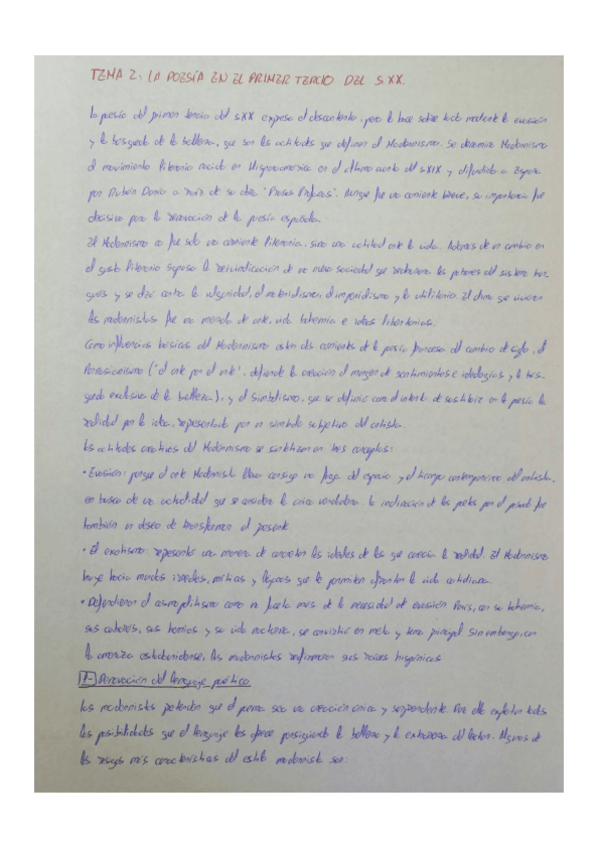 TEMA 2: LA POESÍA EN EL PRIMER TERCIO DEL S.XX.
La poesía del primer tercio del sXX expresa el descontento, pero lo hace sobre todo mediante la evasión
y la búsqueda de la belleza, que son las actitudes que definen el Modernismo. Se denomina Modernismo
al movimiento literario nacido en Hispanoamérica en el último cuarto del sXIX y difundido a España
por Rubén Darío a raíz de su obra "Prosas Profanas". Aunque fue una corriente breve, su importancia fue
decisiva para la renovación de la poesía española.
El Modernismo no fue solo una corriente literaria, sino una actitud ante la vida. Además de un cambio en
el gusto literario supuso la reivindicación de una nueva sociedad que rechazara los patrones del sistema bur-
gués y se alzó contra la vulgaridad, el materialismo, el imperialismo y lo utilitario. El clima que vivieron
los modernistas fue una mezcla de arte, vida bohemia e ideas libertarias.
Como influencias básicas del Modernismo están dos corrientes de la poesía francesa del cambio de siglo, el
Parnasianismo ("el arte por el arte", defiende la creación al margen de sentimientos e ideologías y la bús-
queda exclusiva de la belleza), y el Simbolismo, que se define como el intento de sustituir en la poesía la
realidad por la idea, representada por un símbolo subjetivo del artista.
Las actitudes creativas del Modernismo se sintetizan en tres conceptos:
• Evasión: porque el arte Modernista lleva consigo una fuga del espacio y el tiempo contemporáneo del artista,
en busca de una actividad que se considera la única verdadera. La inclinación de los poetas por el pasado fue
también un deseo de transformar el presente.
• El exotismo: representa una manera de concretar los ideales de los que carecía la realidad. El Modernismo
huye hacia mundos irreales, míticos y lejanos que le permiten afrontar la vida cotidiana.
• Defendieron el cosmopolitismo como una faceta más de la necesidad de evasión. París, con su bohemia,
sus cabarets, sus barrios y su vida nocturna, se convirtió en meta y tema principal. Sin embargo, con
la amenaza estadounidense, los modernistas reafirmaron sus raíces hispánicas.
1- Renovación del lenguaje poético
Los modernistas pretendían que el poema sea una creación única y sorprendente. Por ello explotan todas
las posibilidades que el lenguaje les ofrece persiguiendo la belleza y la extrañeza del lector. Algunos de
los rasgos más característicos del estilo modernista son: